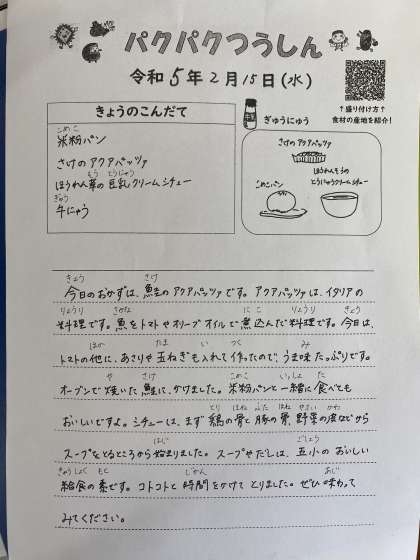 パクパクつうしん
令和5年2月15日(水)
きょうのこんだて
こめこ
米粉パン
さけのアクアパッツァ
そう とうにゅう
ほうれん草の豆乳クリームシチュー
ぎゅう
牛にゅう
ぎゅうにゅう
↑盛り付け方↑
食材の産地を紹介!
さけのアクアパッツァ
こめこパン
ほうれんそうの
とうにゅうクリームシチュー
きょう さけ
今日のおかずは、鮭のアクアパッツァです。アクアパッツァは、イタリアの
りょうり さかな にこ りょうり きょう
料理です。魚をトマトやオリーブオイルで煮込んだ料理です。今日は、
ほか たま い つく み
トマトの他に、あさりや玉ねぎも入れて作ったので、うま味たっぷりです。
や さけ こめこ いっしょ た
オーブンで焼いた鮭に、かけました。米粉パンと一緒に食べても
とり ほね ぶた ほね やさい かわ
おいしいですよ。シチューは、まず鶏の骨と豚の骨、野菜の皮などから
はじ ごしょう
スープをとるところから始まりました。スープやだしは、五小のおいしい
きゅうしょく もと じかん あじ
給食の素です。コトコトと時間をかけてとりました。ぜひ味わって
みてください。